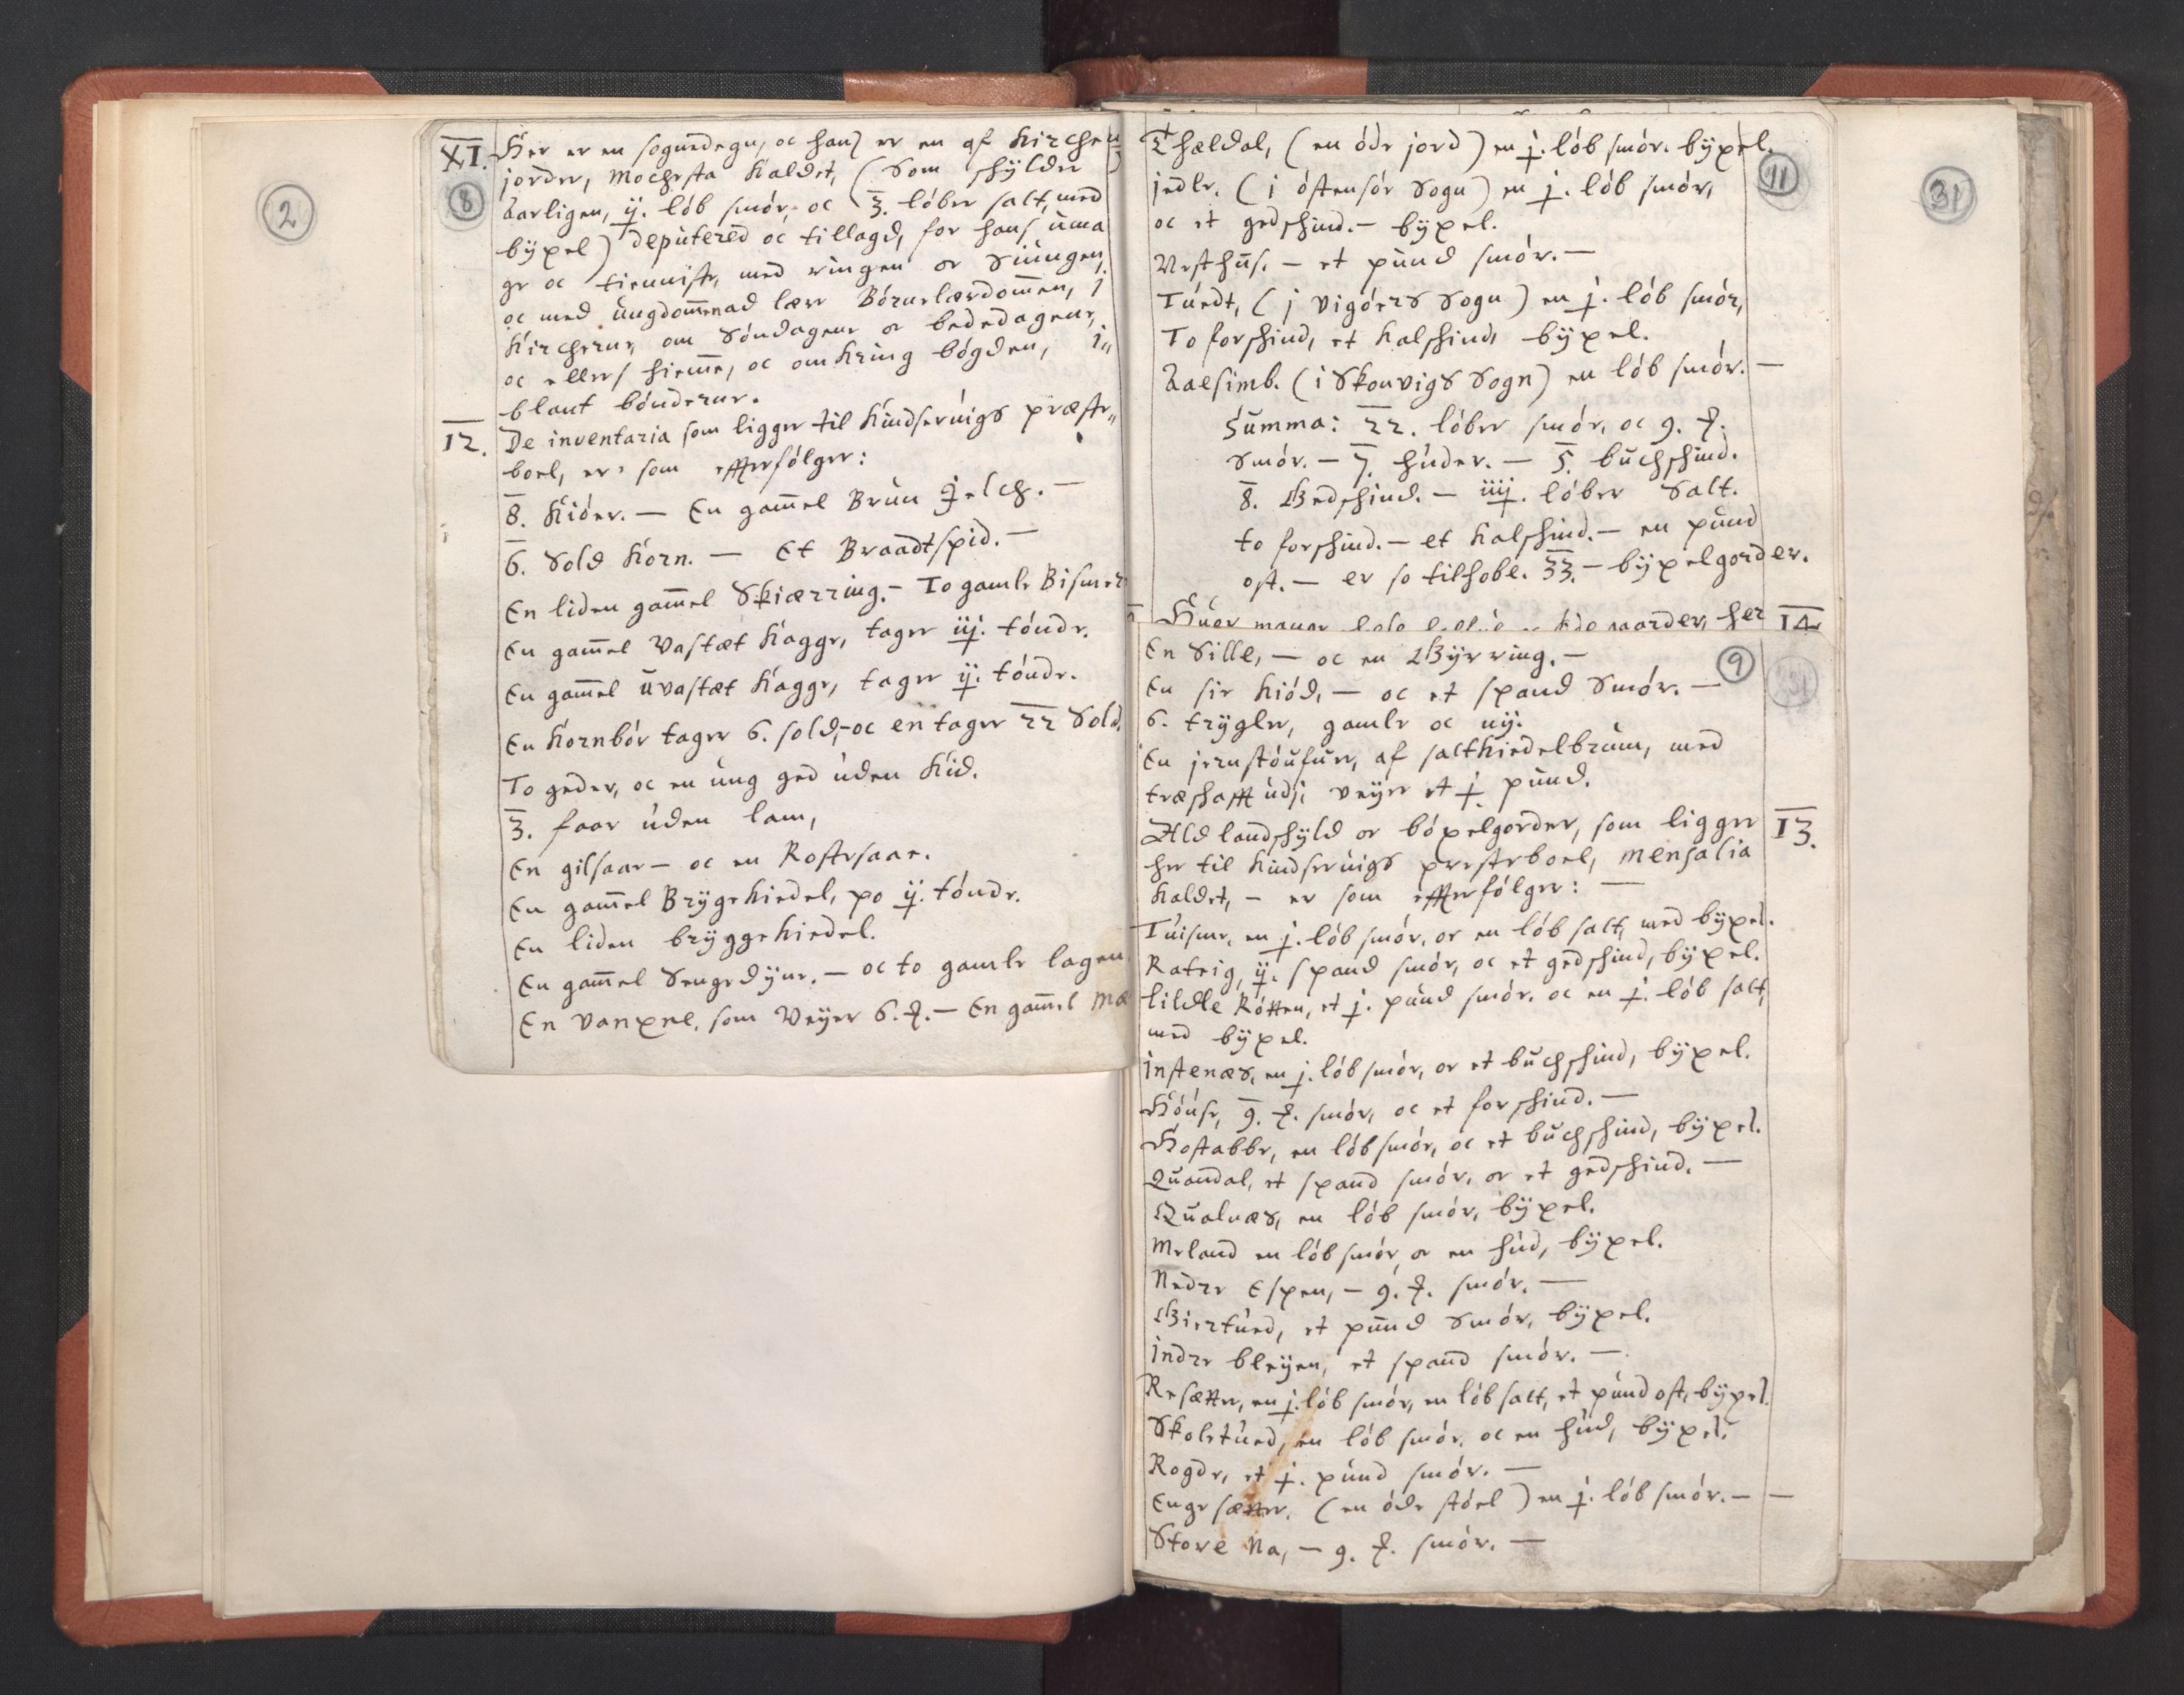 2
XI. Her er en sognedegn, oc hans er en af Kirchens
8
jorder, Mochesta kaldet, (som skylder
Aarligen, ij. lób smór, oc 3. lóber salt, med
býxel) deputered oc tillagd, for hans uma
ge oc tienniste, med ringen oc siungen,
oc med ungdommenad lære Bórnelærdommen, i
Kircherne om Sóndagene oc bededagene,
oc ellers hiemme, oc omkring bógden, i„
blant bónderne.
12. De inventaria som ligger til Kindseruigs præste„
boel, er som effterfólger:
8. Kióer. — En gammel Brun jelch. —
6. Sold Korn. — Et Braadtspid. —
En liden gammel Skiærring. — To gamle Bismer
En gammel Vastæt Kagge, tager iij. tónde.
En gammel uvastæt Kagge, tager ij. tónde.
En Kornbór tager 6. sold, — oc en tager 22 Sold.
To geder, oc en ung ged uden Kid.
3. faar uden lam,
En gilsaar — oc en Rostesaar.
En gammel Brygekiedel, po ij. tónde.
En liden bryggekiedel.
En gammel Sengedyne. — oc to gamle lagen
En vanxne, som Veyer 6. ℔. — En gammel Mæ
Thældal, (en óde jord) en j. lób smór. býxel.
11
31
jedle. (i óstensór Sogn) en j. lób smór,
oc et gedskind. — býxel.
Vesthus. — et pund smór. —
Tuedt, (j Vigóers Sogn) en j. lób smór,
To forskind, et kalskind, býxel.
Aalsimb. (i Skonvigs Sogn) en lób smór. —
Summa: 22. lóber smór, oc 9. ℔.
Smór. — 7. huder. — 5. buchskind.
8. Gedskind. — iiij. lóber Salt.
to forskind. — et kalskind. — en pund
ost. — er so tilhobe. 33. — býxelgorder.
14
En Sille, — oc en Býrring. —
9
En sie kiód, — oc et spand Smór. —
6. trygler, gamle oc ný.
En jernstóufuer, af saltkiedelbrum, med
træskafft udj, veýer et j. pund.
Ald landskýld oc bóxelgorder, som ligger
13.
her til Kindseruigs presteboel, mensalia
kaldet, — er som effterfólger: —
Tuisme, en j. lób smór, oc en lób salt, med býxel.
Rateig, ij. spand smór, oc et gedskind, býxel.
lildle Rótten, et j. pund smór. oc en j. lób salt,
med býxel.
Instenæs, en j. lób smór, oc et buchskind, býxel.
Hóuse, 9. ℔. smór, oc et forskind. —
Hostabbe, en lób smór, oc et buchskind, býxel.
Quandal, et spand smór, oc et gedskind. —
Qualnæs, en lób smór, býxel.
Meland en lób smór, oc en hud, býxel.
Nedre Espen, — 9. ℔. smór. —
Giertued, et pund Smór, býxel.
Indre bleýen, et spand smór. —
Resætter, en j. lób smór, en lób salt, et pund ost, býxel.
Skoletued, en lób smór, oc en hud, býxel.
Rogde, et j. pund smór. —
Engesætter. (en óde stóel) en j. lób smór. — —
Store Na, — 9. ℔. smór. —